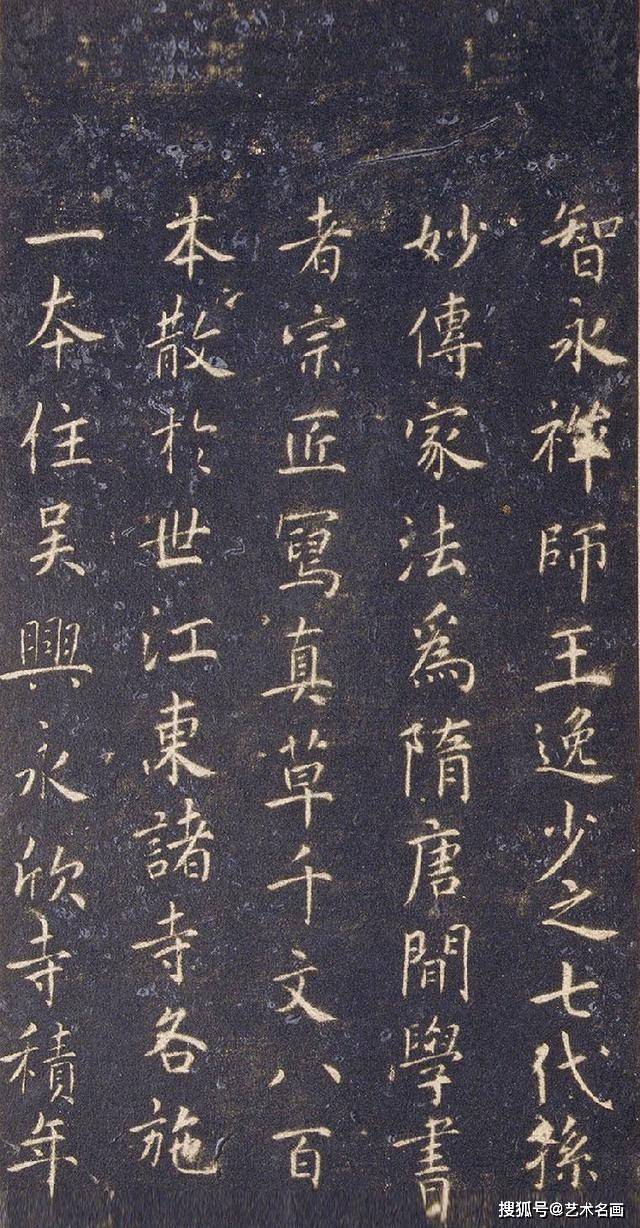 智永禅師王逸少之七代孫
妙傳家法為隋唐間學書
者宗匠寫真草千文八百
本散於世江東諸寺各施
一本住吴興永欣寺積年
搜狐号@艺术名画